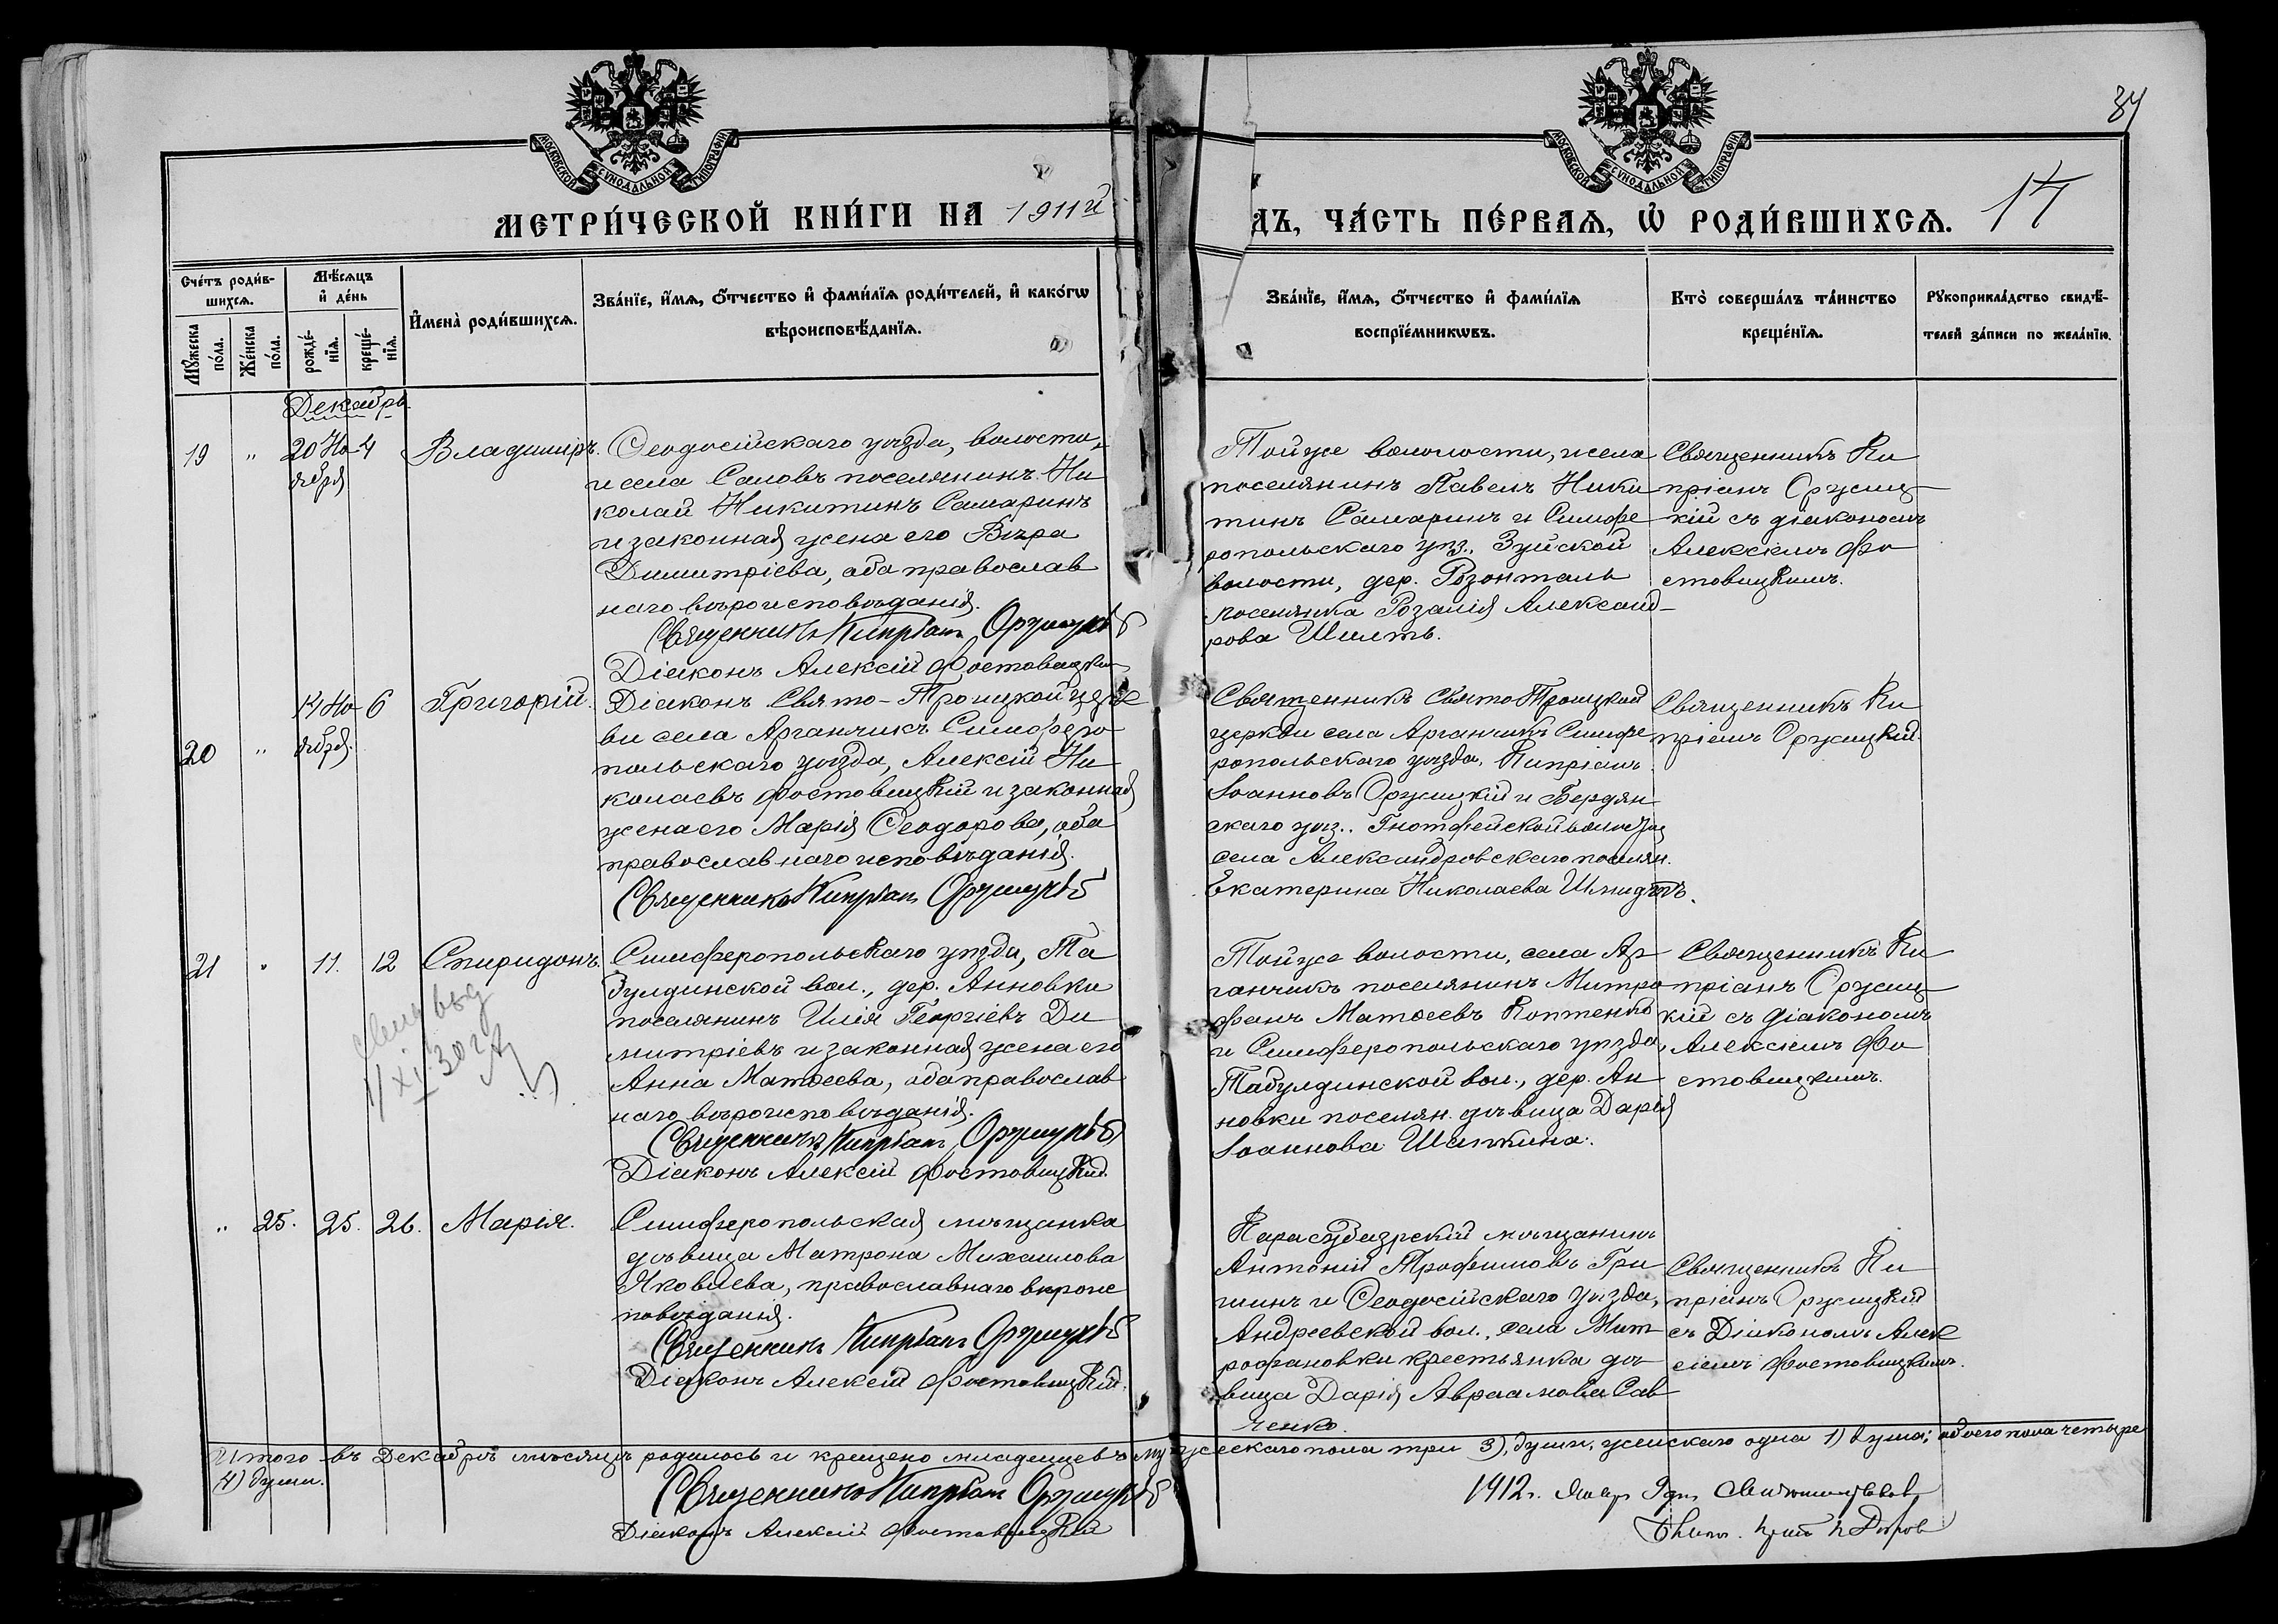 МОСКОВСКОЙ СѴНОДАЛЬНОЙ ТИПОГРАФІИ
МОСКОВСКОЙ СѴНОДАЛЬНОЙ ТИПОГРАФІИ
34
МЕТРИ́ЧЕСКОЙ КНИ́ГИ НА 1911й
ДЪ, ЧА́СТЬ ПЕ́РВАѦ, Ѡ҆ РОДИ́ВШИХСѦ. 14
Сче́тъ роди́в-
шихсѧ.
Мꙋ́жеска по́ла.
Же́нска по́ла.
Мѣ́сѧцъ
и҆ де́нь
рожде́-
нїѧ.
креще́-
нїѧ.
И҆мена̀ роди́вшихсѧ.
Зва́нїе, и҆́мѧ, ѻ҆́тчество и҆ фами́лїѧ роди́телей, и҆ како́гѡ
вѣроисповѣ́данїѧ.
Зва́нїе, и҆́мѧ, ѻ҆́тчество и҆ фами́лїѧ
воспрїе́мникѡвъ.
Кто̀ соверша́лъ та́инство
креще́нїѧ.
Рꙋкоприкла́дство свидѣ́-
телей за́писи по жела́нїю.
Декабрь.
19 " 20 Но-
ября
4
Владимиръ.
Ѳеодосійскаго уѣзда, волости,
и села Саловъ поселянинъ Ни
колай Никитинъ Самаринъ
и законная жена его Вѣра
Димитріева, оба православ
наго вѣроисповѣданія.
Священникъ Кипріанъ Оружицкій
Діаконъ Алексій Фостовицкій
Той же волости, и села
поселянинъ Павелъ Ники
тинъ Самаринъ и Симфе
ропольскаго уѣз., Зуйской
волости, дер. Розонталь
поселянка Розалія Александ-
рова Шилть.
Священникъ Ки
пріанъ Оружиц
кій съ діакономъ
Алексіемъ Фо
стовицкимъ.
20 " 14 Но-
ября.
6
Григорій.
Діаконъ Свято-Троицкой церк
ви села Арганчикъ Симферо
польскаго уѣзда, Алексій Ни
колаевъ Фостовицкій и законная
жена его Марія Ѳеодорова, оба
православнаго исповѣданія.
Священникъ Кипріанъ Оружицкій
Священникъ Свято Троицкой
церкви села Арганчикъ Симфе
ропольскаго уѣзда, Кипріанъ
Іоанновъ Оружицкій и Бердян
скаго уѣз.
села Александровскаго поселян.
Екатерина Николаева Шмидтъ.
Священникъ Ки
пріанъ Оружицкій.
21 " 11. 12
Спиридонъ.
Симферопольскаго уѣзда, Та
булдинской вол., дер. Анновки
поселянинъ Илія Георгіевъ Ди
митріевъ и законная жена его
Анна Матѳеева, оба православ
наго вѣроисповѣданія.
Священникъ Кипріанъ Оружицкій
Діаконъ Алексій Фостовицкій.
Той же волости, села Ар
ганчикъ поселянинъ Митро
фанъ Матѳеевъ Коптенко
и Симферопольскаго уѣзда,
Табулдинской вол., дер. Ан
новки поселян. дѣвица Дарія
Іоаннова Шаткина.
Священникъ Ки
пріанъ Оружиц
кій съ діакономъ
Алексіемъ Фо
стовицкимъ.
" 25. 25. 26.
Марія.
Симферопольская мѣщанка
дѣвица Матрона Михаилова
Яковлева, православнаго вѣроис
повѣданія.
Священникъ Кипріанъ Оружицкій
Діаконъ Алексій Фостовицкій.
Карасубазрскій мѣщанинъ
Антоній Трофимовъ Гри
шинъ и Ѳеодосійскаго уѣзда,
Андреевской вол., села Мит
рофановки крестьянка дѣ
вица Дарія Авраамова Сав
ченко.
Священникъ Ки
пріанъ Оружицкій
съ Діакономъ Алек
сіемъ Фостовицкимъ.
Итого въ Декабрѣ мѣсяцѣ родилось и крещено младенцевъ мужескаго пола три 3), души, женскаго одна 1) душа; обоего пола четыре
4) души.
Священникъ Кипріанъ Оружицкій
Діаконъ Алексій Фостовицкій
1912 г.